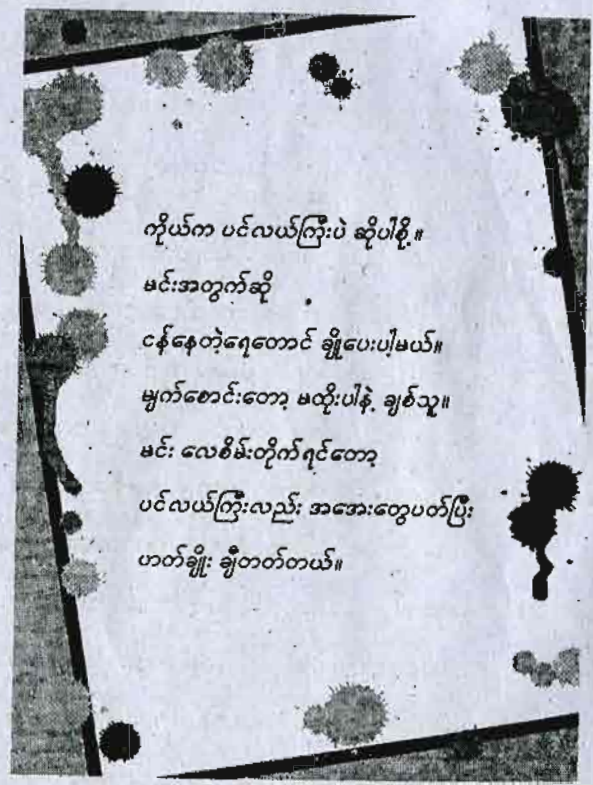 ကိုယ်က ပင်လယ်ကြီးပဲ ဆိုပါစို့။
မင်းအတွက်ဆို
ငန်နေတဲ့ရေတောင် ချိုပေးပါ့မယ်။
မျက်စောင်းတော့ မထိုးပါနဲ့ ချစ်သူ။
မင်း လေစိမ်းတိုက်ရင်တော့
ပင်လယ်ကြီးလည်း အအေးတွေပတ်ပြီး
ဟတ်ချိုး ချီတတ်တယ်။